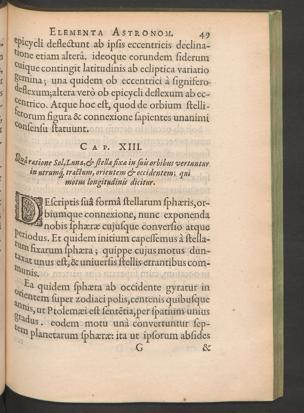 ELEMENTA ASTRONOM. 49
epicycli deflectunt ab ipsis eccentricis declina-
tione etiam alterâ. ideoque eorundem siderum
cuique contingit latitudinis ab ecliptica variatio
gemina; una quidem ob eccentrici à signifero
deflexum; altera verò ob epicycli deflexum ab ec-
centrico. Atque hoc est, quod de orbium stelli-
ferorum figura & connexione sapientes unanimi
consensu statuunt.
CAP. XIII.
ratione Sol, Luna, & stellæ fixæ in suis orbibus vertuntur
in utrumq; tractum, orientem & occidentem; qui
motus longitudinis dicitur.
DEscriptis suâ formâ stellarum sphæris, or-
biumque connexione, nunc exponenda
nobis sphæræ cujusque conversio atque
periodus. Et quidem initium capessemus à stella-
rum fixarum sphæra; quippe cujus motus dun-
taxat unus est, & universis stellis errantibus com-
munis.
Ea quidem sphæra ab occidente gyratur in
orientem super zodiaci polis, centenis quibusque
annis, ut Ptolemæi est sententia, per spatium unius
gradus. eodem motu unà convertuntur sep-
tem planetarum sphæræ: ita ut ipsorum absides
G &